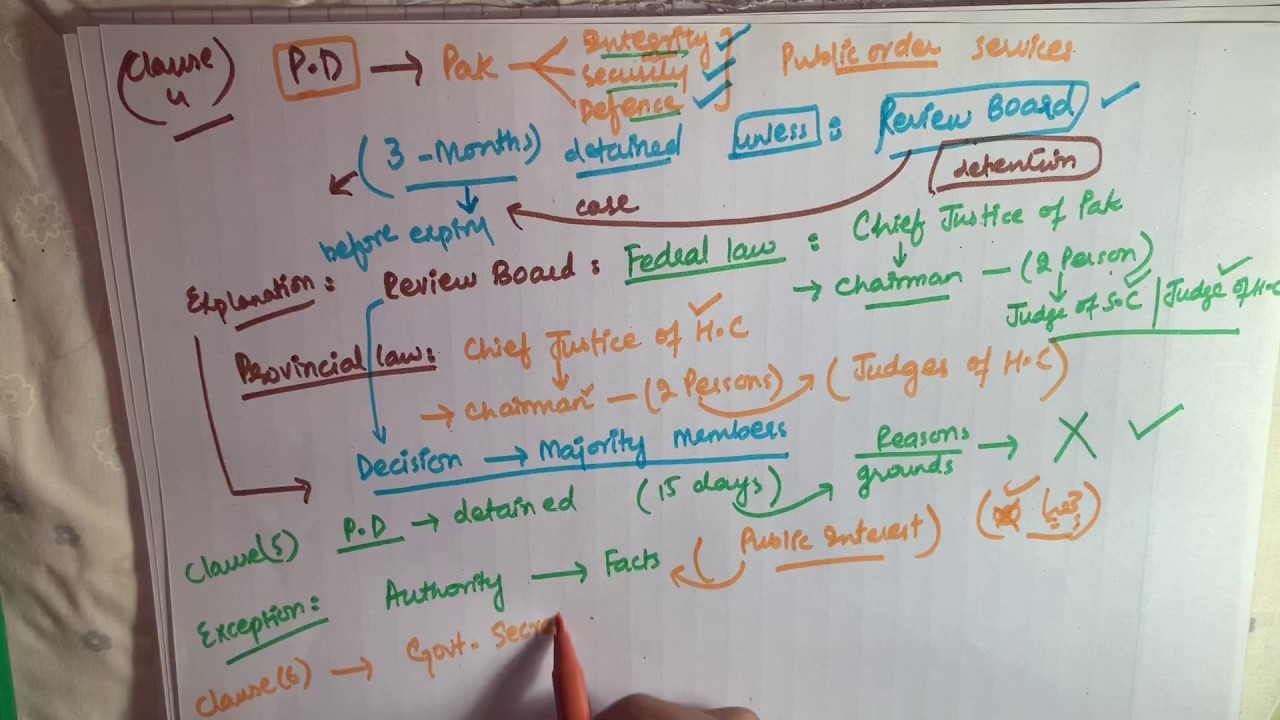 (Clause 4) P.D → Pak Integrity Public order services
Security
Defence
(3-Months) detained unless : Review Board
detention
before expiry case
Explanation : Review Board : Federal law : Chief Justice of Pak
→ Chairman — (2 Person)
Judge of S.C | Judge of H.C
Provincial law : Chief Justice of H.C
→ Chairman — (2 Persons) (Judges of H.C)
Decision → Majority members
Clause(5) P.D → detained (15 days) Reasons grounds → X
Exception : Authority → Facts (Public Interest)
Clause(6) → Govt. Secre